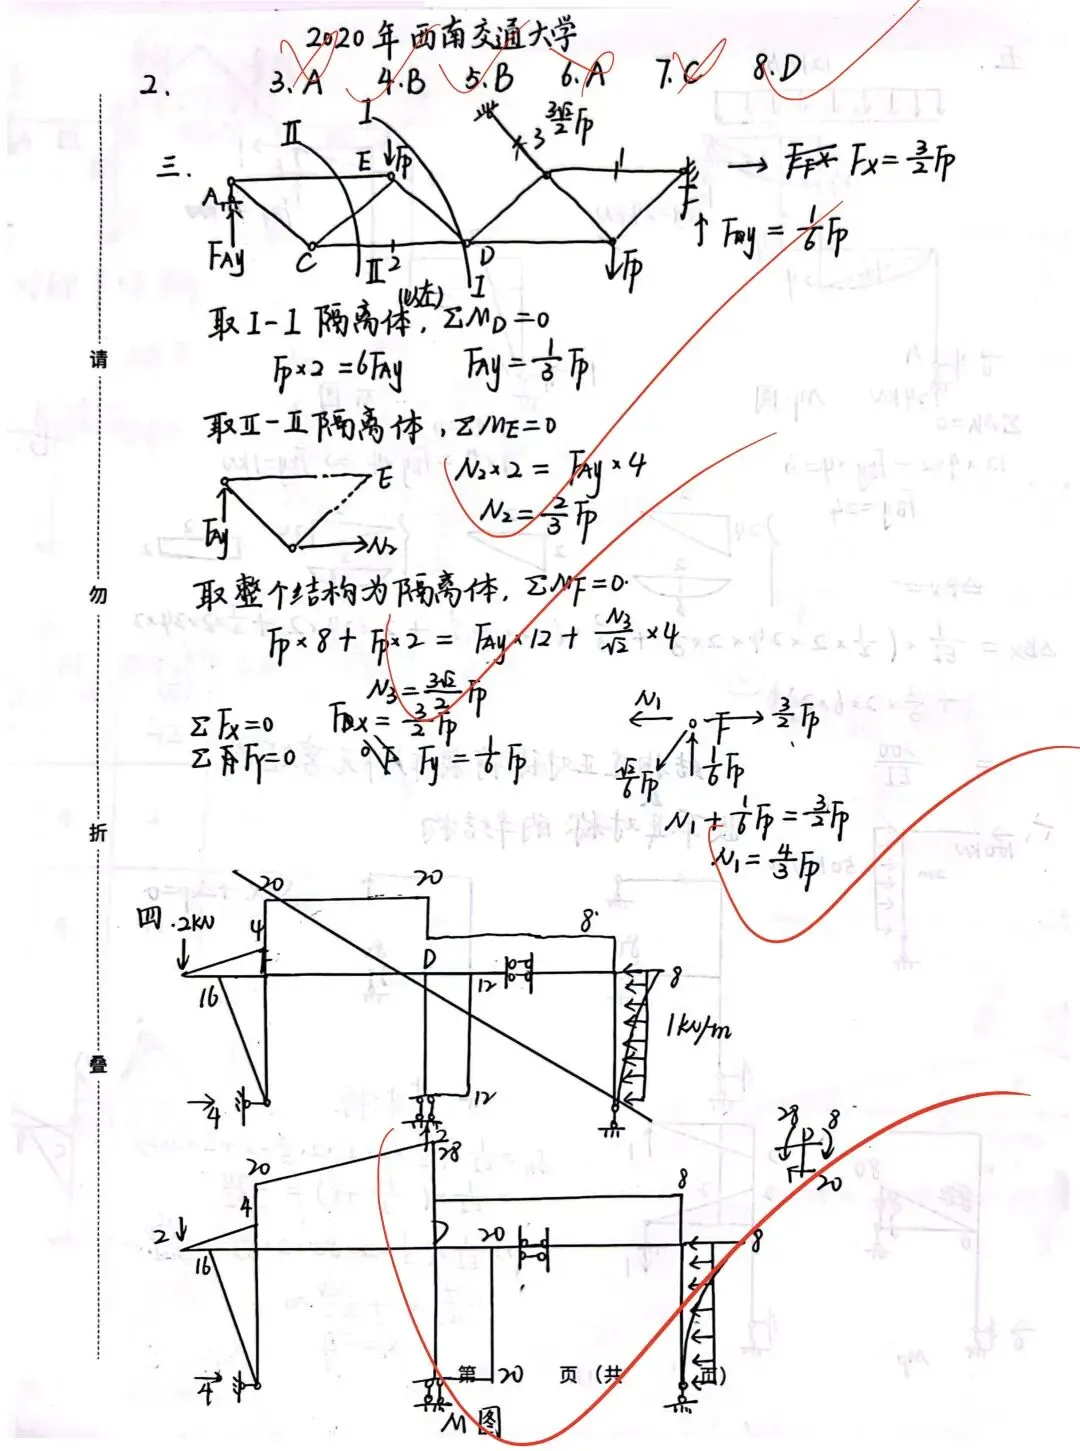 2020年西南交通大学
2. 3.A 4.B 5.B 6.A 7.C 8.D
三.
I
II
E
Fp
3
3√2/2 Fp
1
A
F
→ Fx=3/2Fp
FAy
C
II
2
D
I
Fp
↑ FBy=1/6Fp
取I-I隔离体(以左), ΣMD=0
Fp×2=6FAy FAy=1/3Fp
取II-II隔离体, ΣME=0
N2×2=FAy×4
N2=2/3Fp
E
FAy
N2
取整个结构为隔离体, ΣMF=0.
Fp×8+Fp×2=FAy×12+N3/√2×4
N3=3√2/2Fp
ΣFx=0 FBx=3/2Fp
ΣFy=0 Fy=1/6Fp
N1
F
3/2Fp
√2/6Fp
1/6Fp
N1+1/6Fp=3/2Fp
N1=4/3Fp
四.
2kN
20
20
4
8
F
D
16
12
8
1kN/m
4
12
2
28
20
4
8
28
8
D
20
2
D
20
8
16
4
20
M图
请
勿
折
叠
第 页(共 页)